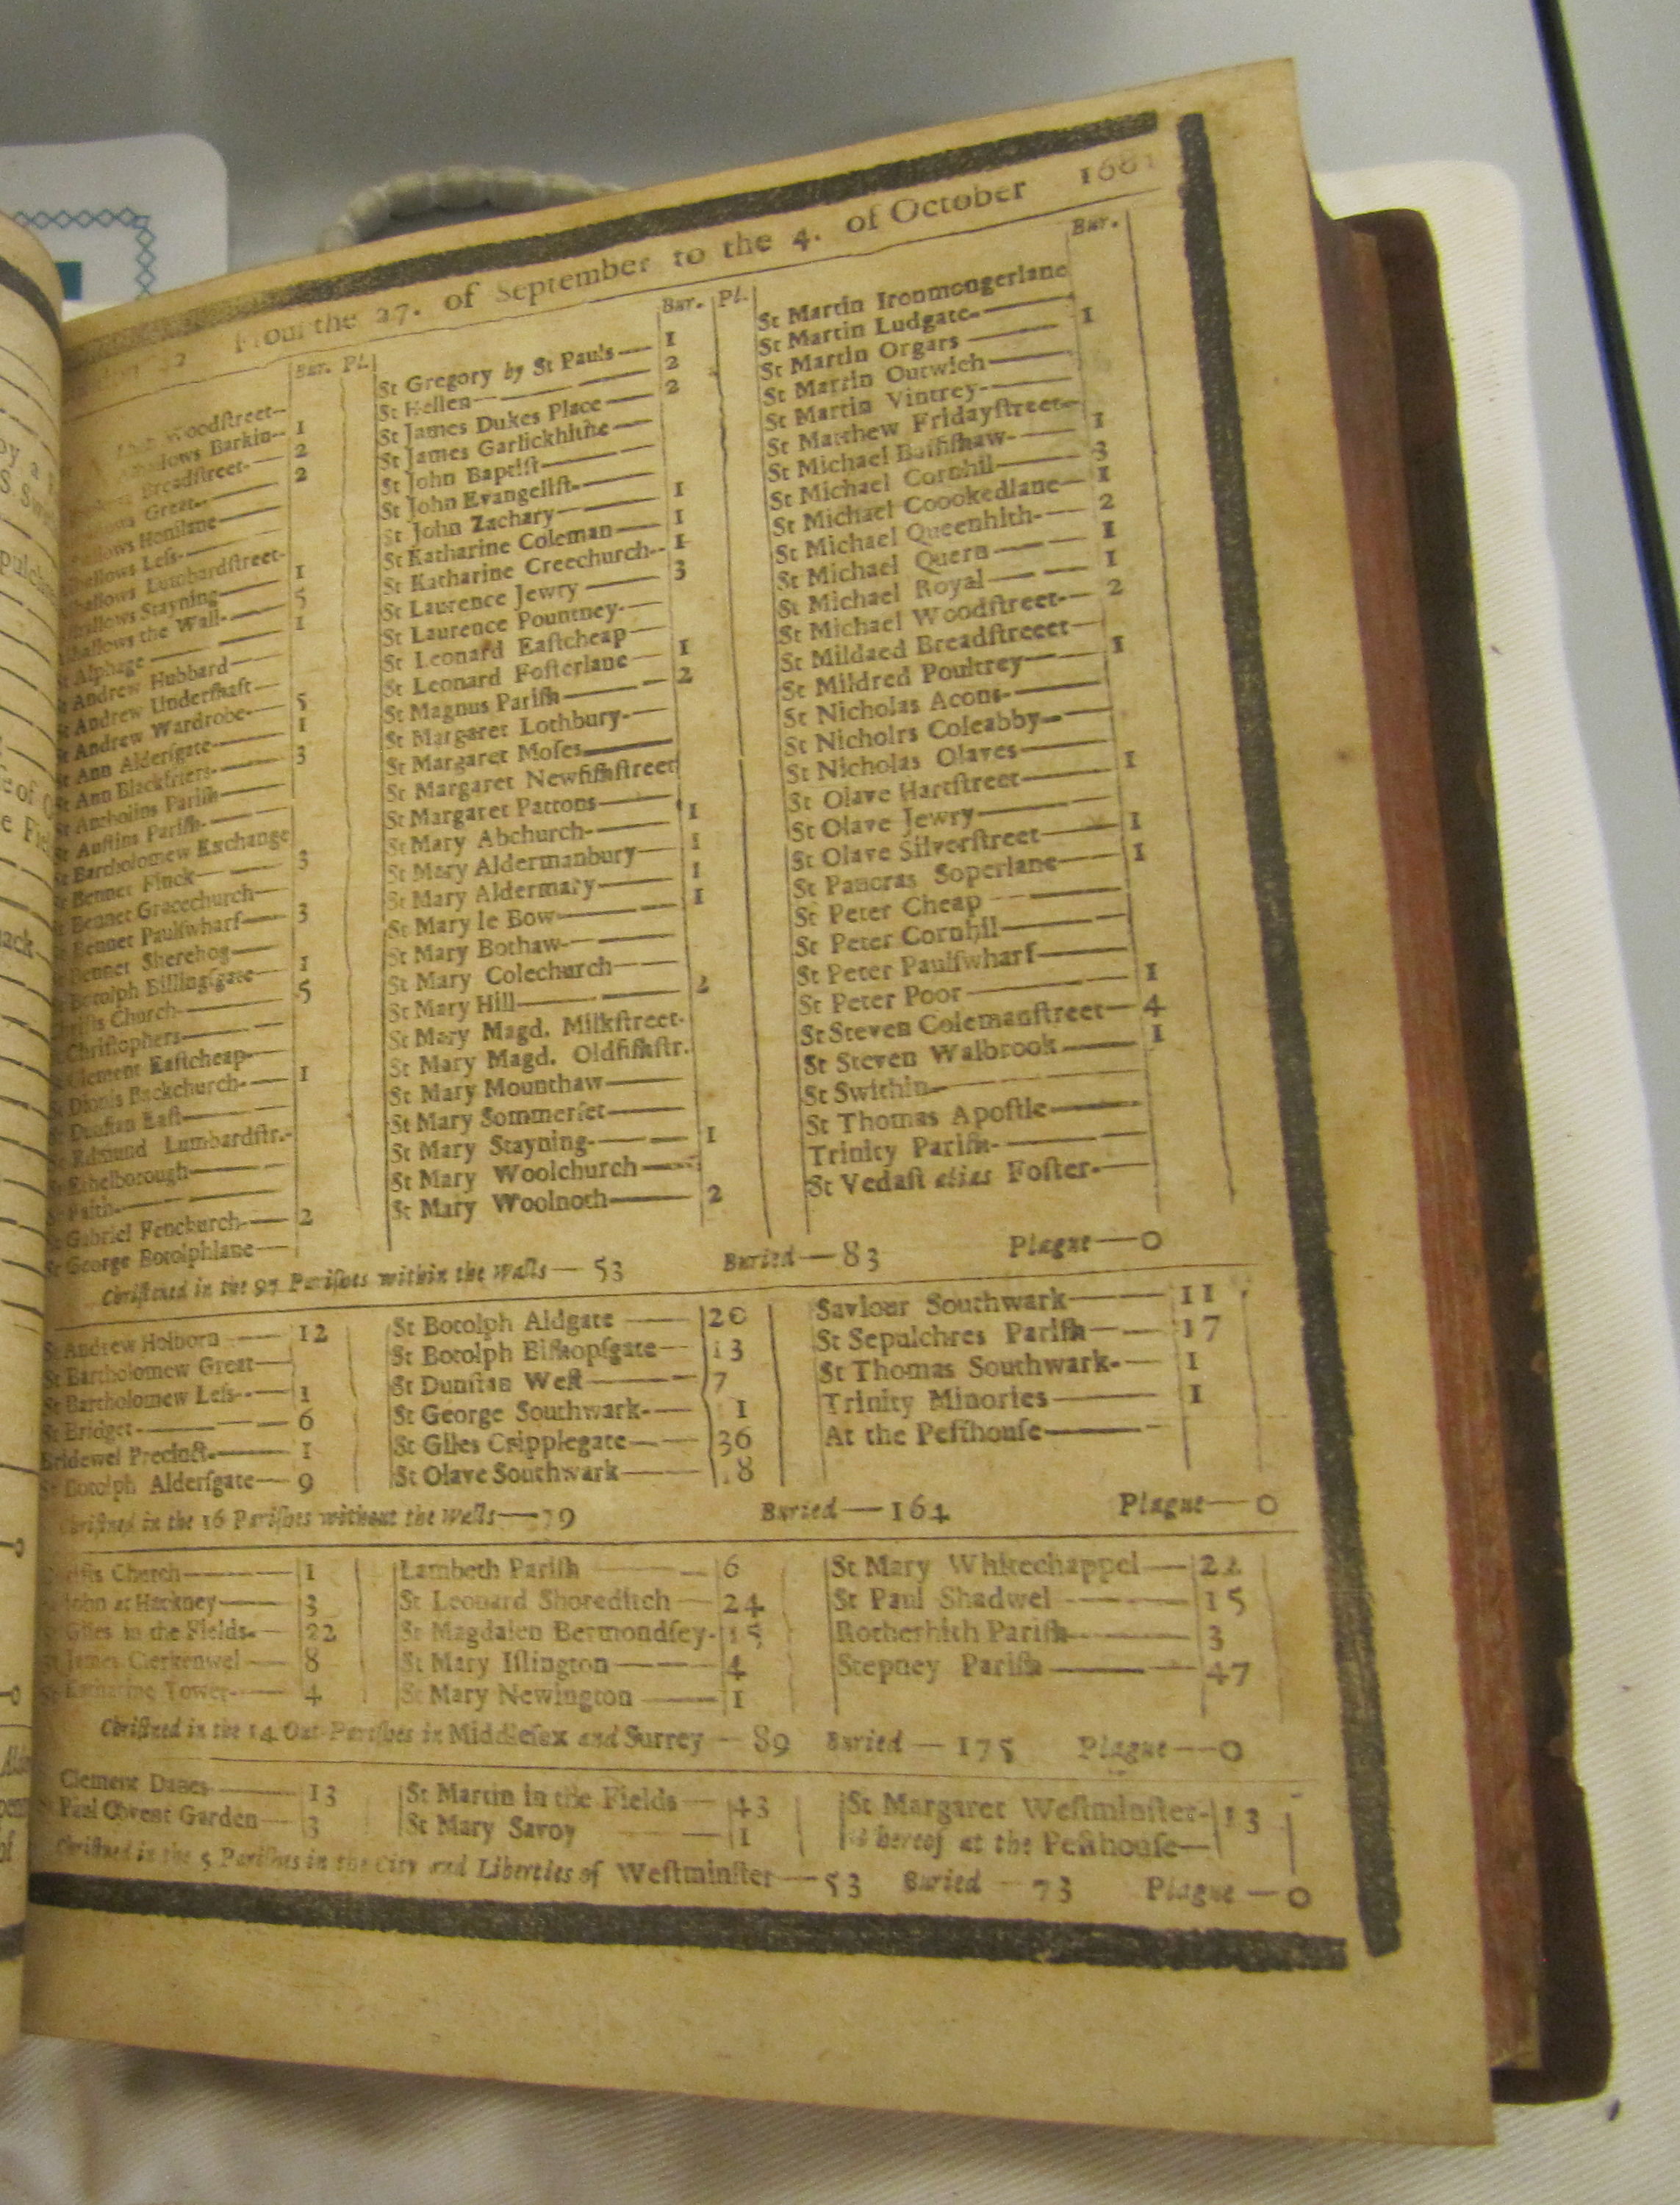 From the 27. of September to the 4. of October 1681
Bur. Pl.
Woodſtreet
Barkin 1
Breadſtreet 2
Great 2
Honilane
Leſs
Lumbardſtreet
Stayning 1
the Wall 5
St Alphage 1
St Andrew Hubbard
St Andrew Underſhaft
St Andrew Wardrobe 5
St Ann Alderſgate 1
St Ann Blackfriers 3
St Antholins Pariſh
St Auſtins Pariſh
St Bartholomew Exchange
St Bennet Finck 3
St Bennet Gracechurch
St Bennet Paulſwharf 3
St Bennet Sherehog
St Botolph Billingſgate 1
Chriſts Church 5
St Chriſtophers
St Clement Eaſtcheap
St Dionis Backchurch 1
St Dunſtan Eaſt
St Edmund Lumbardſtr.
St Ethelborough
St Faith
St Gabriel Fenchurch 2
St George Botolphlane
Bur. Pl.
St Gregory by St Pauls 1
St Hellen 2
St James Dukes Place 2
St James Garlickhithe
St John Baptiſt
St John Evangeliſt
St John Zachary 1
St Katharine Coleman 1
St Katharine Creechurch 1
St Laurence Jewry 3
St Laurence Pountney
St Leonard Eaſtcheap
St Leonard Foſterlane 1
St Magnus Pariſh 2
St Margaret Lothbury
St Margaret Moſes
St Margaret Newfiſhſtreet
St Margaret Pattons
St Mary Abchurch 1
St Mary Aldermanbury 1
St Mary Aldermary 1
St Mary le Bow 1
St Mary Bothaw
St Mary Colechurch
St Mary Hill 2
St Mary Magd. Milkſtreet
St Mary Magd. Oldfiſhſtr.
St Mary Mounthaw
St Mary Sommerſet
St Mary Stayning 1
St Mary Woolchurch
St Mary Woolnoth 2
Bur.
St Martin Ironmongerlane
St Martin Ludgate
St Martin Orgars 1
St Martin Outwich
St Martin Vintrey
St Matthew Fridayſtreet
St Michael Baſſiſhaw 1
St Michael Cornhil 3
St Michael Coookedlane 1
St Michael Queenhith 2
St Michael Quern 1
St Michael Royal 1
St Michael Woodſtreet 2
St Mildaed Breadſtreeet
St Mildred Poultrey 1
St Nicholas Acons
St Nicholrs Coleabby
St Nicholas Olaves
St Olave Hartſtreet 1
St Olave Jewry
St Olave Silverſtreet 1
St Pancras Soperlane 1
St Peter Cheap
St Peter Cornhil
St Peter Paulſwharf
St Peter Poor 1
St Steven Colemanſtreet 4
St Steven Walbrook 1
St Swithin
St Thomas Apoſtle
Trinity Pariſh
St Vedaſt alias Foſter
Chriſtned in the 97 Pariſhes within the Walls — 53 Buried — 83 Plague — 0
St Andrew Holborn 12
St Bartholomew Great
St Bartholomew Leſs 1
St Bridget 6
Bridewel Precinct 1
St Botolph Alderſgate 9
St Botolph Aldgate 20
St Botolph Biſhopſgate 13
St Dunſtan Weſt 7
St George Southwark 1
St Giles Cripplegate 36
St Olave Southwark 8
Saviour Southwark 11
St Sepulchres Pariſh 17
St Thomas Southwark 1
Trinity Minories 1
At the Peſthouſe
Chriſtned in the 16 Pariſhes without the Walls — 79 Buried — 164 Plague — 0
Chriſts Church 1
John at Hackney 3
St Giles in the Fields 22
St James Clerkenwel 8
St Katharine Tower 4
Lambeth Pariſh 6
St Leonard Shoreditch 24
St Magdalen Bermondſey 15
St Mary Iſlington 4
St Mary Newington 1
St Mary Whitechappel 22
St Paul Shadwel 15
Rotherhith Pariſh 3
Stepney Pariſh 47
Chriſtned in the 14 Out-Pariſhes in Middleſex and Surrey — 89 Buried — 175 Plague — 0
Clement Danes 13
Paul Covent Garden 3
St Martin in the Fields 43
St Mary Savoy 1
St Margaret Weſtminſter 13
Whereof at the Peſthouſe
Chriſtned in the 5 Pariſhes in the City and Liberties of Weſtminſter — 53 Buried — 73 Plague — 0